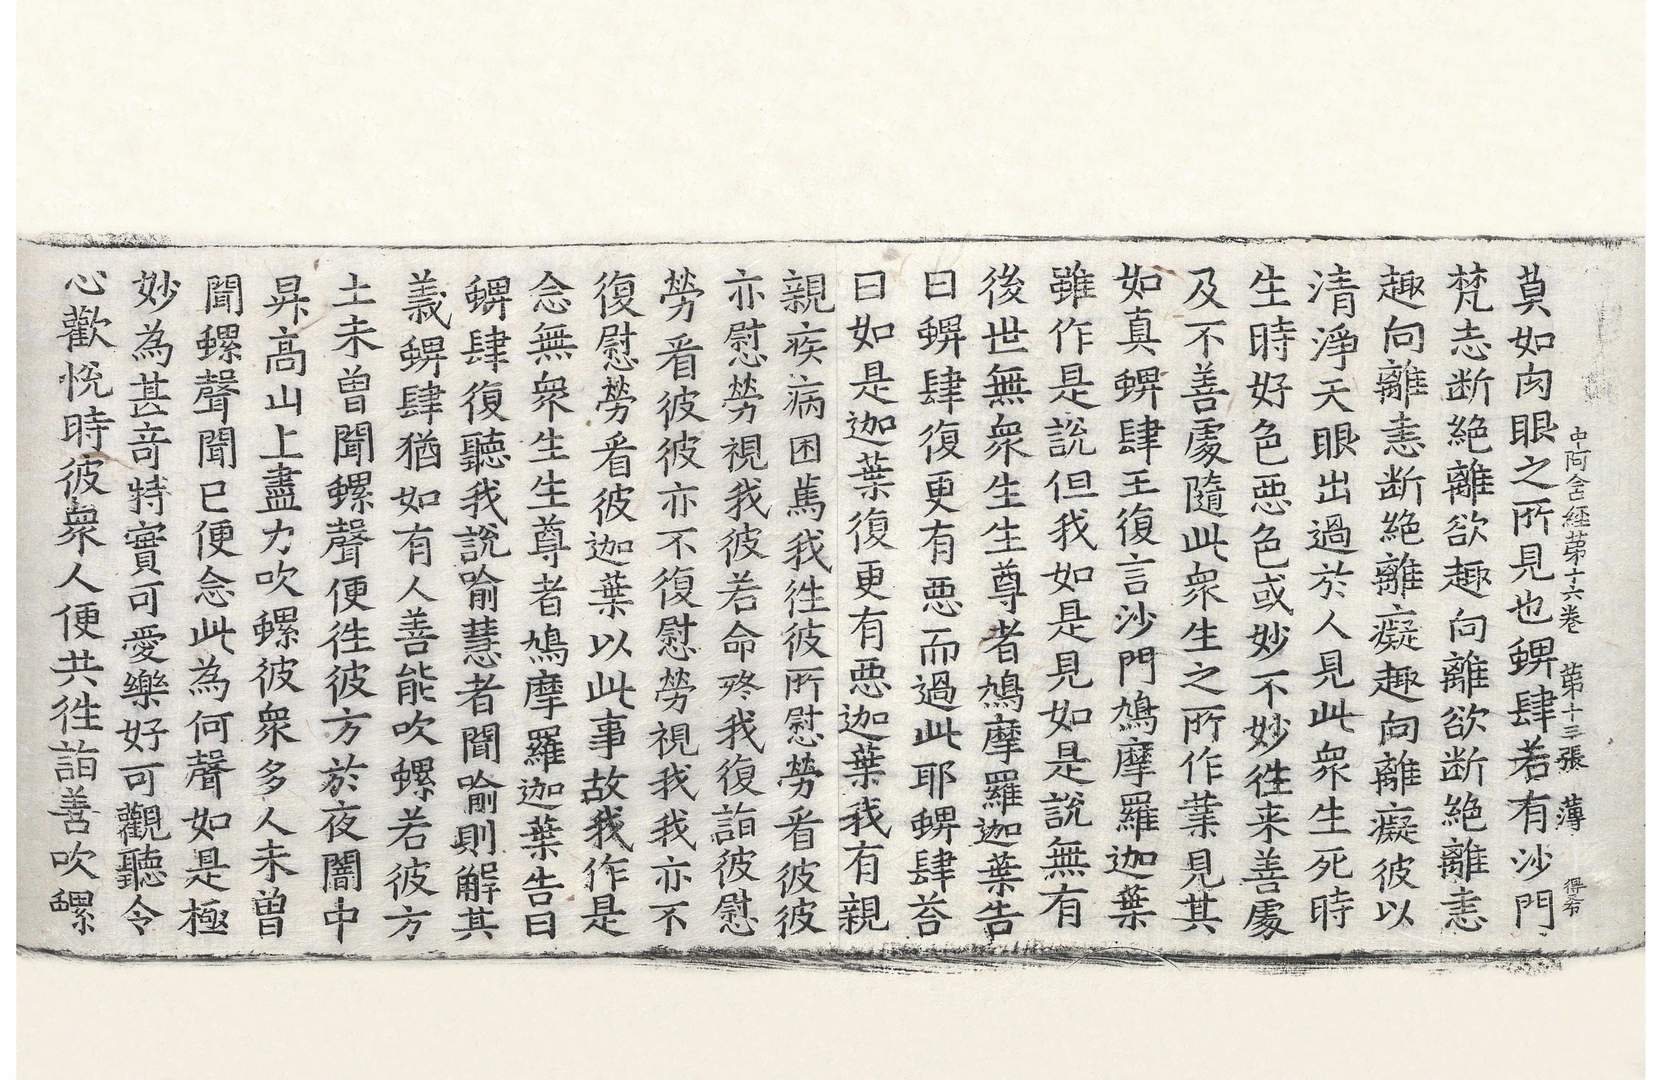 中阿含経苐十六卷 苐十三張 薄 得爷
莫如肉眼之所見也蜱肆若有沙門
梵志断絶離欲趣向離欲断絶離恚
趣向離恚断絶離癡趣向離癡彼以
清淨天眼出過於人見此衆生死時
生時好色悪色或妙不妙徃来善處
及不善處隨此衆生之所作業見其
如真蜱肆王復言沙門鳩摩羅迦葉
雖作是說但我如是見如是說無有
後世無衆生生尊者鳩摩羅迦葉告
曰蜱肆復更有悪而過此耶蜱肆荅
曰如是迦葉復更有悪迦葉我有親
親疾病困篤我徃彼所慰勞看彼彼
亦慰勞視我彼若命終我復詣彼慰
勞看彼彼亦不復慰勞視我我亦不
復慰勞看彼迦葉以此事故我作是
念無衆生生尊者鳩摩羅迦葉告曰
蜱肆復聽我說喻慧者聞喻則解其
義蜱肆猶如有人善能吹螺若彼方
土未曽聞螺聲便徃彼方於夜闇中
昇高山上盡力吹螺彼衆多人未曽
聞螺聲聞已便念此為何聲如是極
妙為甚竒特實可愛樂好可觀聽令
心歡悅時彼衆人便共徃詣善吹螺